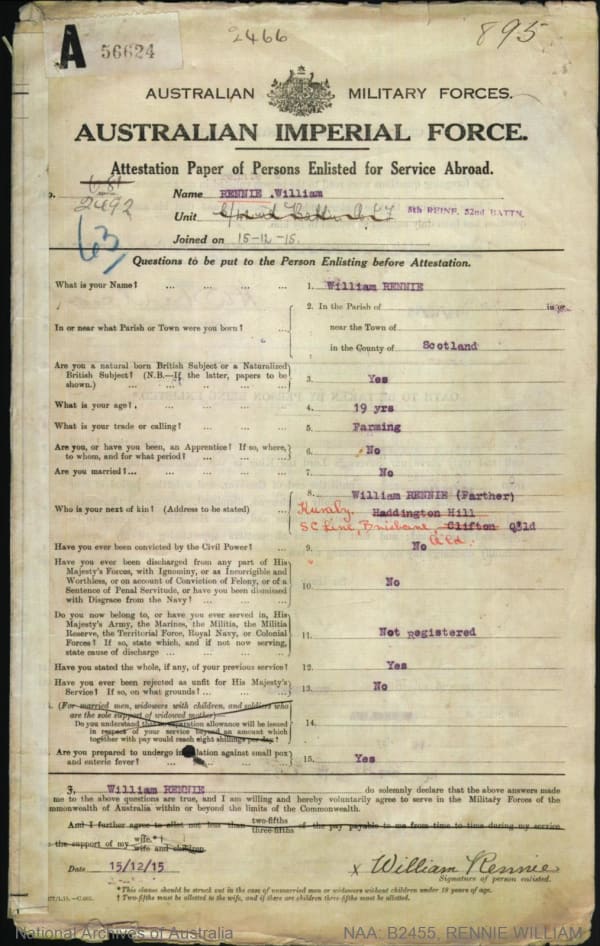 A 56624
2466
895
AUSTRALIAN MILITARY FORCES.
AUSTRALIAN IMPERIAL FORCE.
Attestation Paper of Persons Enlisted for Service Abroad.
o. 681
2492
63
Name RENNIE .William
Unit 5th REINF. 52nd BATTN.
Joined on 15-12-15.
Questions to be put to the Person Enlisting before Attestation.
What is your Name? ... ... ... ... 1. William RENNIE
2. In the Parish of in or
In or near what Parish or Town were you born? ... near the Town of
in the County of Scotland
Are you a natural born British Subject or a Naturalized
British Subject? (N.B.—If the latter, papers to be
shown.) ... ... ... ... 3. Yes
What is your age? ... ... ... ... 4. 19 yrs
What is your trade or calling? ... ... ... 5. Farming
Are you, or have you been, an Apprentice? If so, where,
to whom, and for what period? ... ... ... 6. No
Are you married?... ... ... ... ... 7. No
8. William RENNIE (Farther)
Who is your next of kin? (Address to be stated) ... Kuraby. Haddington Hill
SC Line, Brisbane Clifton Qsld
Qld.
Have you ever been convicted by the Civil Power? ... 9. No
Have you ever been discharged from any part of His
Majesty's Forces, with Ignominy, or as Incorrigible and
Worthless, or on account of Conviction of Felony, or of a
Sentence of Penal Servitude, or have you been dismissed
with Disgrace from the Navy? ... ... ... 10. No
Do you now belong to, or have you ever served in, His
Majesty's Army, the Marines, the Militia, the Militia
Reserve, the Territorial Force, Royal Navy, or Colonial
Forces? If so, state which, and if not now serving,
state cause of discharge ... ... ... 11. Not registered
Have you stated the whole, if any, of your previous service? 12. Yes
Have you ever been rejected as unfit for His Majesty's
Service? If so, on what grounds? ... ... ... 13. No
(For married men, widowers with children, and soldiers who
are the sole support of widowed mother)—
Do you understand that no separation allowance will be issued
in respect of your service beyond an amount which
together with pay would reach eight shillings per day? 14.
Are you prepared to undergo inoculation against small pox
and enteric fever? ... ... ... ... 15. Yes
3. William RENNIE do solemnly declare that the above answers made
me to the above questions are true, and I am willing and hereby voluntarily agree to serve in the Military Forces of the
mmonwealth of Australia within or beyond the limits of the Commonwealth.
And I further agree to allot not less than two-fifths of the pay payable to me from time to time during my service
three-fifths
the support of my wife.*
wife and children.
Date 15/12/15 x William Rennie
Signature of person enlisted.
*This clause should be struck out in the case of unmarried men or widowers without children under 18 years of age.
† Two-fifths must be allotted to the wife, and if there are children three-fifths must be allotted.
National Archives of Australia NAA: B2455, RENNIE WILLIAM